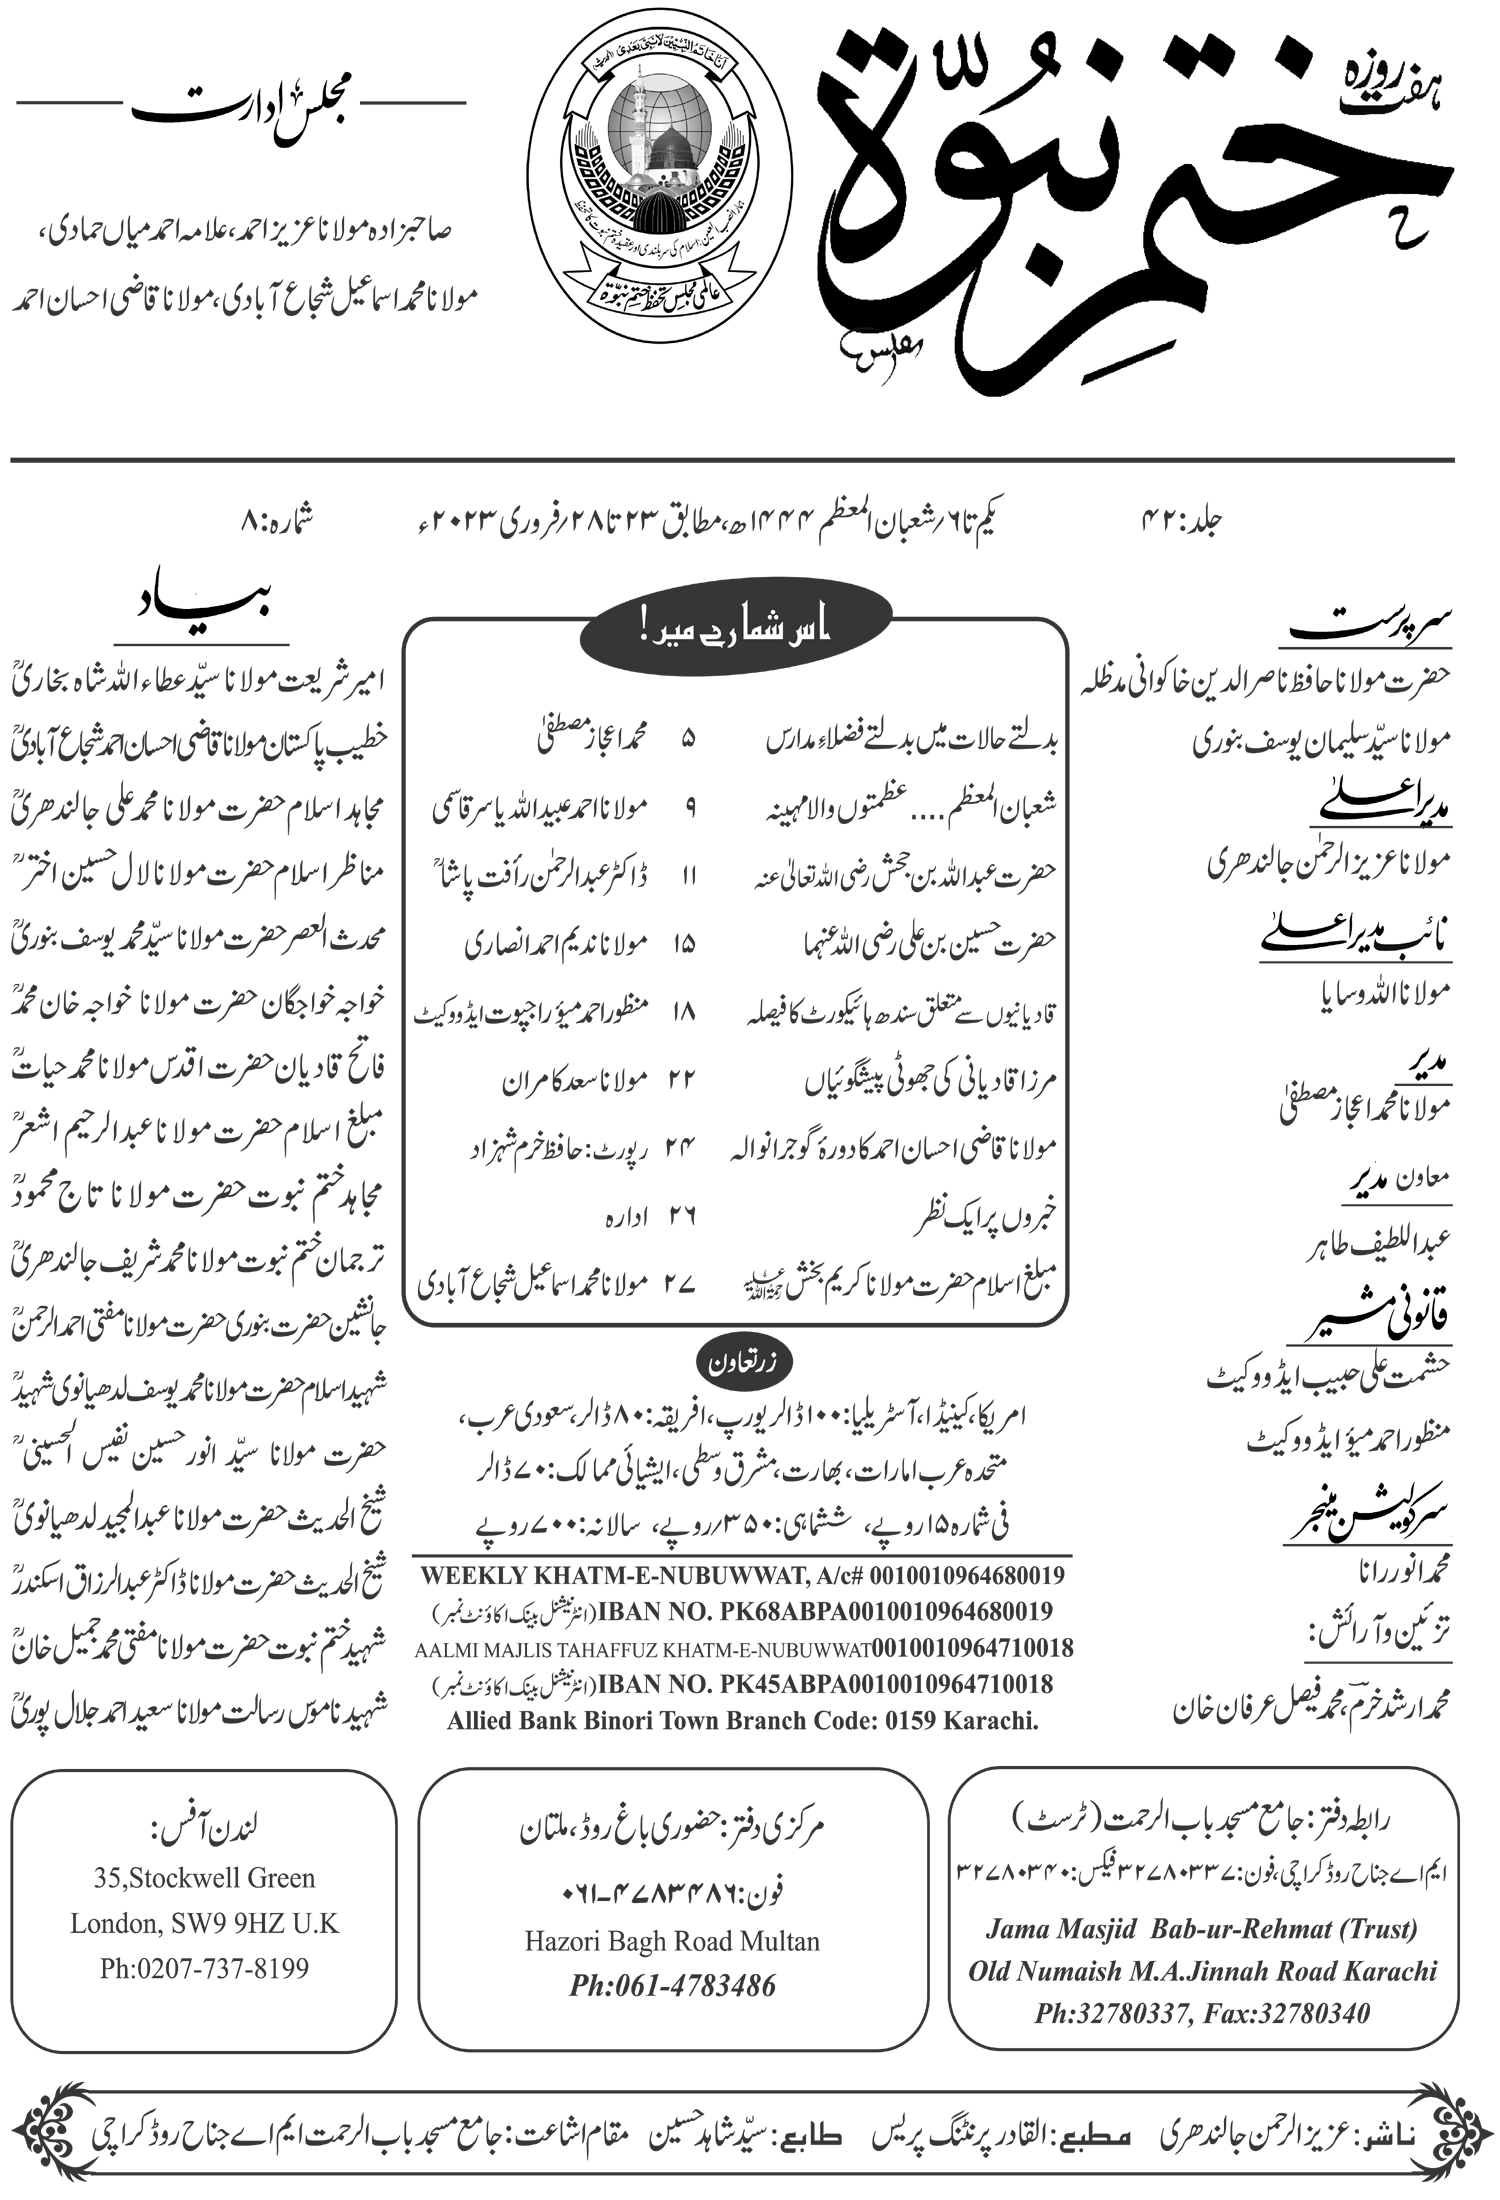 ہفت روزہ
ختم نبوّۃ
مجلس
انا خاتم النبیین لا نبی بعدی
عالمی مجلس تحفظ ختم نبوّۃ
مجلس ادارت
صاحبزادہ مولانا عزیز احمد، علامہ احمد میاں حمادی،
مولانا محمد اسماعیل شجاع آبادی، مولانا قاضی احسان احمد
جلد: ۴۲
یکم تا ۶؍شعبان المعظم ۱۴۴۴ھ، مطابق ۲۳ تا ۲۸؍فروری ۲۰۲۳ء
شمارہ: ۸
سرپرست
حضرت مولانا حافظ ناصر الدین خاکوانی مدظلہ
مولانا سیّد سلیمان یوسف بنوری
مدیر اعلیٰ
مولانا عزیز الرحمٰن جالندھری
نائب مدیر اعلیٰ
مولانا اللہ وسایا
مدیر
مولانا محمد اعجاز مصطفیٰ
معاون مدیر
عبداللطیف طاہر
قانونی مشیر
حشمت علی حبیب ایڈووکیٹ
منظور احمد میؤ ایڈووکیٹ
سرکولیشن مینجر
محمد انور رانا
تزئین و آرائش:
محمد ارشد خرم، محمد فیصل عرفان خان
اس شمارے میں!
بدلتے حالات میں بدلتے فضلاءِ مدارس ۵ محمد اعجاز مصطفیٰ
شعبان المعظم .... عظمتوں والا مہینہ ۹ مولانا احمد عبیداللہ یاسر قاسمی
حضرت عبداللہ بن جحش رضی اللہ تعالیٰ عنہ ۱۱ ڈاکٹر عبدالرحمٰن رأفت پاشاؒ
حضرت حسین بن علی رضی اللہ عنہما ۱۵ مولانا ندیم احمد انصاری
قادیانیوں سے متعلق سندھ ہائیکورٹ کا فیصلہ ۱۸ منظور احمد میؤ راجپوت ایڈووکیٹ
مرزا قادیانی کی جھوٹی پیشگوئیاں ۲۲ مولانا سعد کامران
مولانا قاضی احسان احمد کا دورۂ گوجرانوالہ ۲۴ رپورٹ: حافظ خرم شہزاد
خبروں پر ایک نظر ۲۶ ادارہ
مبلغ اسلام حضرت مولانا کریم بخش رحمۃ اللہ علیہ ۲۷ مولانا محمد اسماعیل شجاع آبادی
زرتعاون
امریکا، کینیڈا، آسٹریلیا: ۱۰۰ ڈالر یورپ، افریقہ: ۸۰ ڈالر، سعودی عرب،
متحدہ عرب امارات، بھارت، مشرق وسطی، ایشیائی ممالک: ۷۰ ڈالر
فی شمارہ ۱۵ روپے، ششماہی: ۳۵۰؍روپے، سالانہ: ۷۰۰ روپے
WEEKLY KHATM-E-NUBUWWAT, A/c# 0010010964680019
IBAN NO. PK68ABPA0010010964680019 (انٹرنیشنل بینک اکاؤنٹ نمبر)
AALMI MAJLIS TAHAFFUZ KHATM-E-NUBUWWAT0010010964710018
IBAN NO. PK45ABPA0010010964710018 (انٹرنیشنل بینک اکاؤنٹ نمبر)
Allied Bank Binori Town Branch Code: 0159 Karachi.
بیاد
امیر شریعت مولانا سیّد عطاء اللہ شاہ بخاریؒ
خطیب پاکستان مولانا قاضی احسان احمد شجاع آبادیؒ
مجاہد اسلام حضرت مولانا محمد علی جالندھریؒ
مناظر اسلام حضرت مولانا لال حسین اخترؒ
محدث العصر حضرت مولانا سیّد محمد یوسف بنوریؒ
خواجہ خواجگان حضرت مولانا خواجہ خان محمدؒ
فاتح قادیان حضرت اقدس مولانا محمد حیاتؒ
مبلغ اسلام حضرت مولانا عبدالرحیم اشعرؒ
مجاہد ختم نبوت حضرت مولانا تاج محمودؒ
ترجمان ختم نبوت مولانا محمد شریف جالندھریؒ
جانشین حضرت بنوری حضرت مولانا مفتی احمد الرحمنؒ
شہید اسلام حضرت مولانا محمد یوسف لدھیانوی شہیدؒ
حضرت مولانا سیّد انور حسین نفیس الحسینیؒ
شیخ الحدیث حضرت مولانا عبدالمجید لدھیانویؒ
شیخ الحدیث حضرت مولانا ڈاکٹر عبدالرزاق اسکندرؒ
شہید ختم نبوت حضرت مولانا مفتی محمد جمیل خانؒ
شہید ناموس رسالت مولانا سعید احمد جلال پوریؒ
رابطہ دفتر: جامع مسجد باب الرحمت (ٹرسٹ)
ایم اے جناح روڈ کراچی، فون: ۳۲۷۸۰۳۳۷ فیکس: ۳۲۷۸۰۳۴۰
Jama Masjid Bab-ur-Rehmat (Trust)
Old Numaish M.A.Jinnah Road Karachi
Ph:32780337, Fax:32780340
مرکزی دفتر: حضوری باغ روڈ، ملتان
فون: ۰۶۱-۴۷۸۳۴۸۶
Hazori Bagh Road Multan
Ph:061-4783486
لندن آفس:
35,Stockwell Green
London, SW9 9HZ U.K
Ph:0207-737-8199
ناشر: عزیز الرحمن جالندھری مطبع: القادر پرنٹنگ پریس طابع: سیّد شاہد حسین مقام اشاعت: جامع مسجد باب الرحمت ایم اے جناح روڈ کراچی